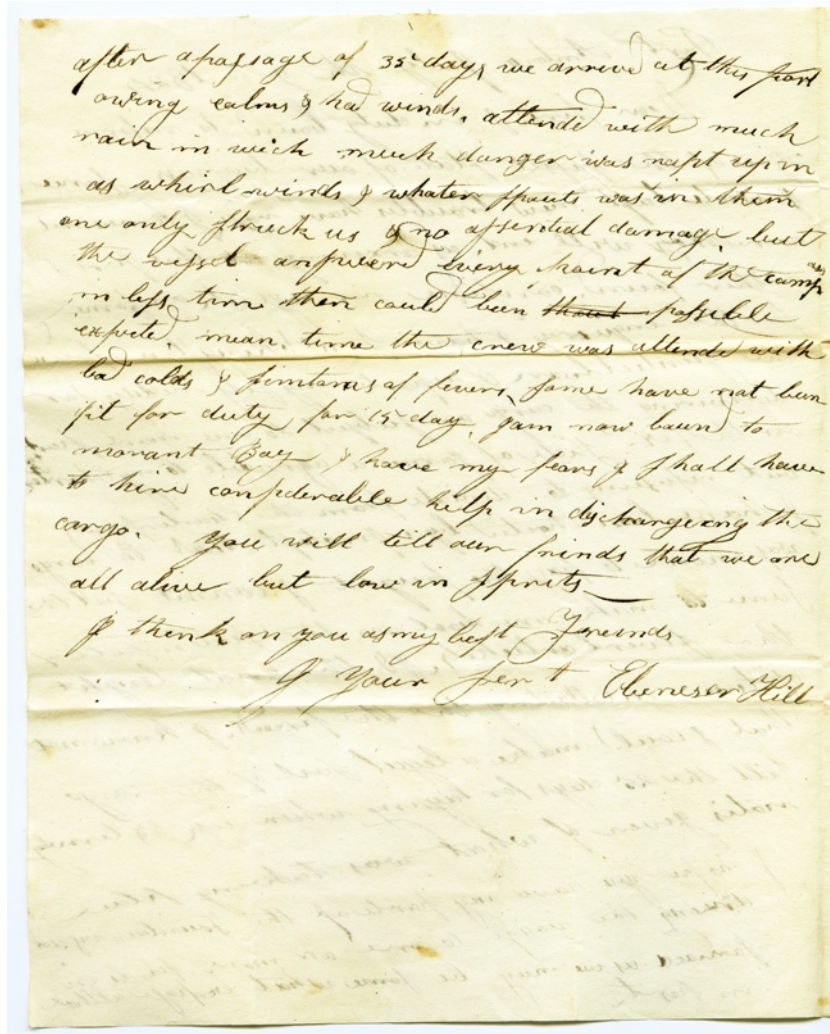 after a passage of 35 days we arrived at this port
owing calms & bad winds, attended with much
rain in wich much danger was rapt up in
as whirl winds & whater spouts was in them
one only struck us & no assential damage, but
the vessel answered every point of the compass
in less time then could been thout possible
expected, mean time the crew was attended with
bad colds & simtams of fevers, some have not been
fit for duty for 15 day, I am now bound to
morant Bay & have my fears I shall have
to hire considerable help in dischargeing the
cargo. You will tell our frinds that we are
all alive but low in sprits
I think on you as my best Freinds
& Your ser t Ebeneser Hill